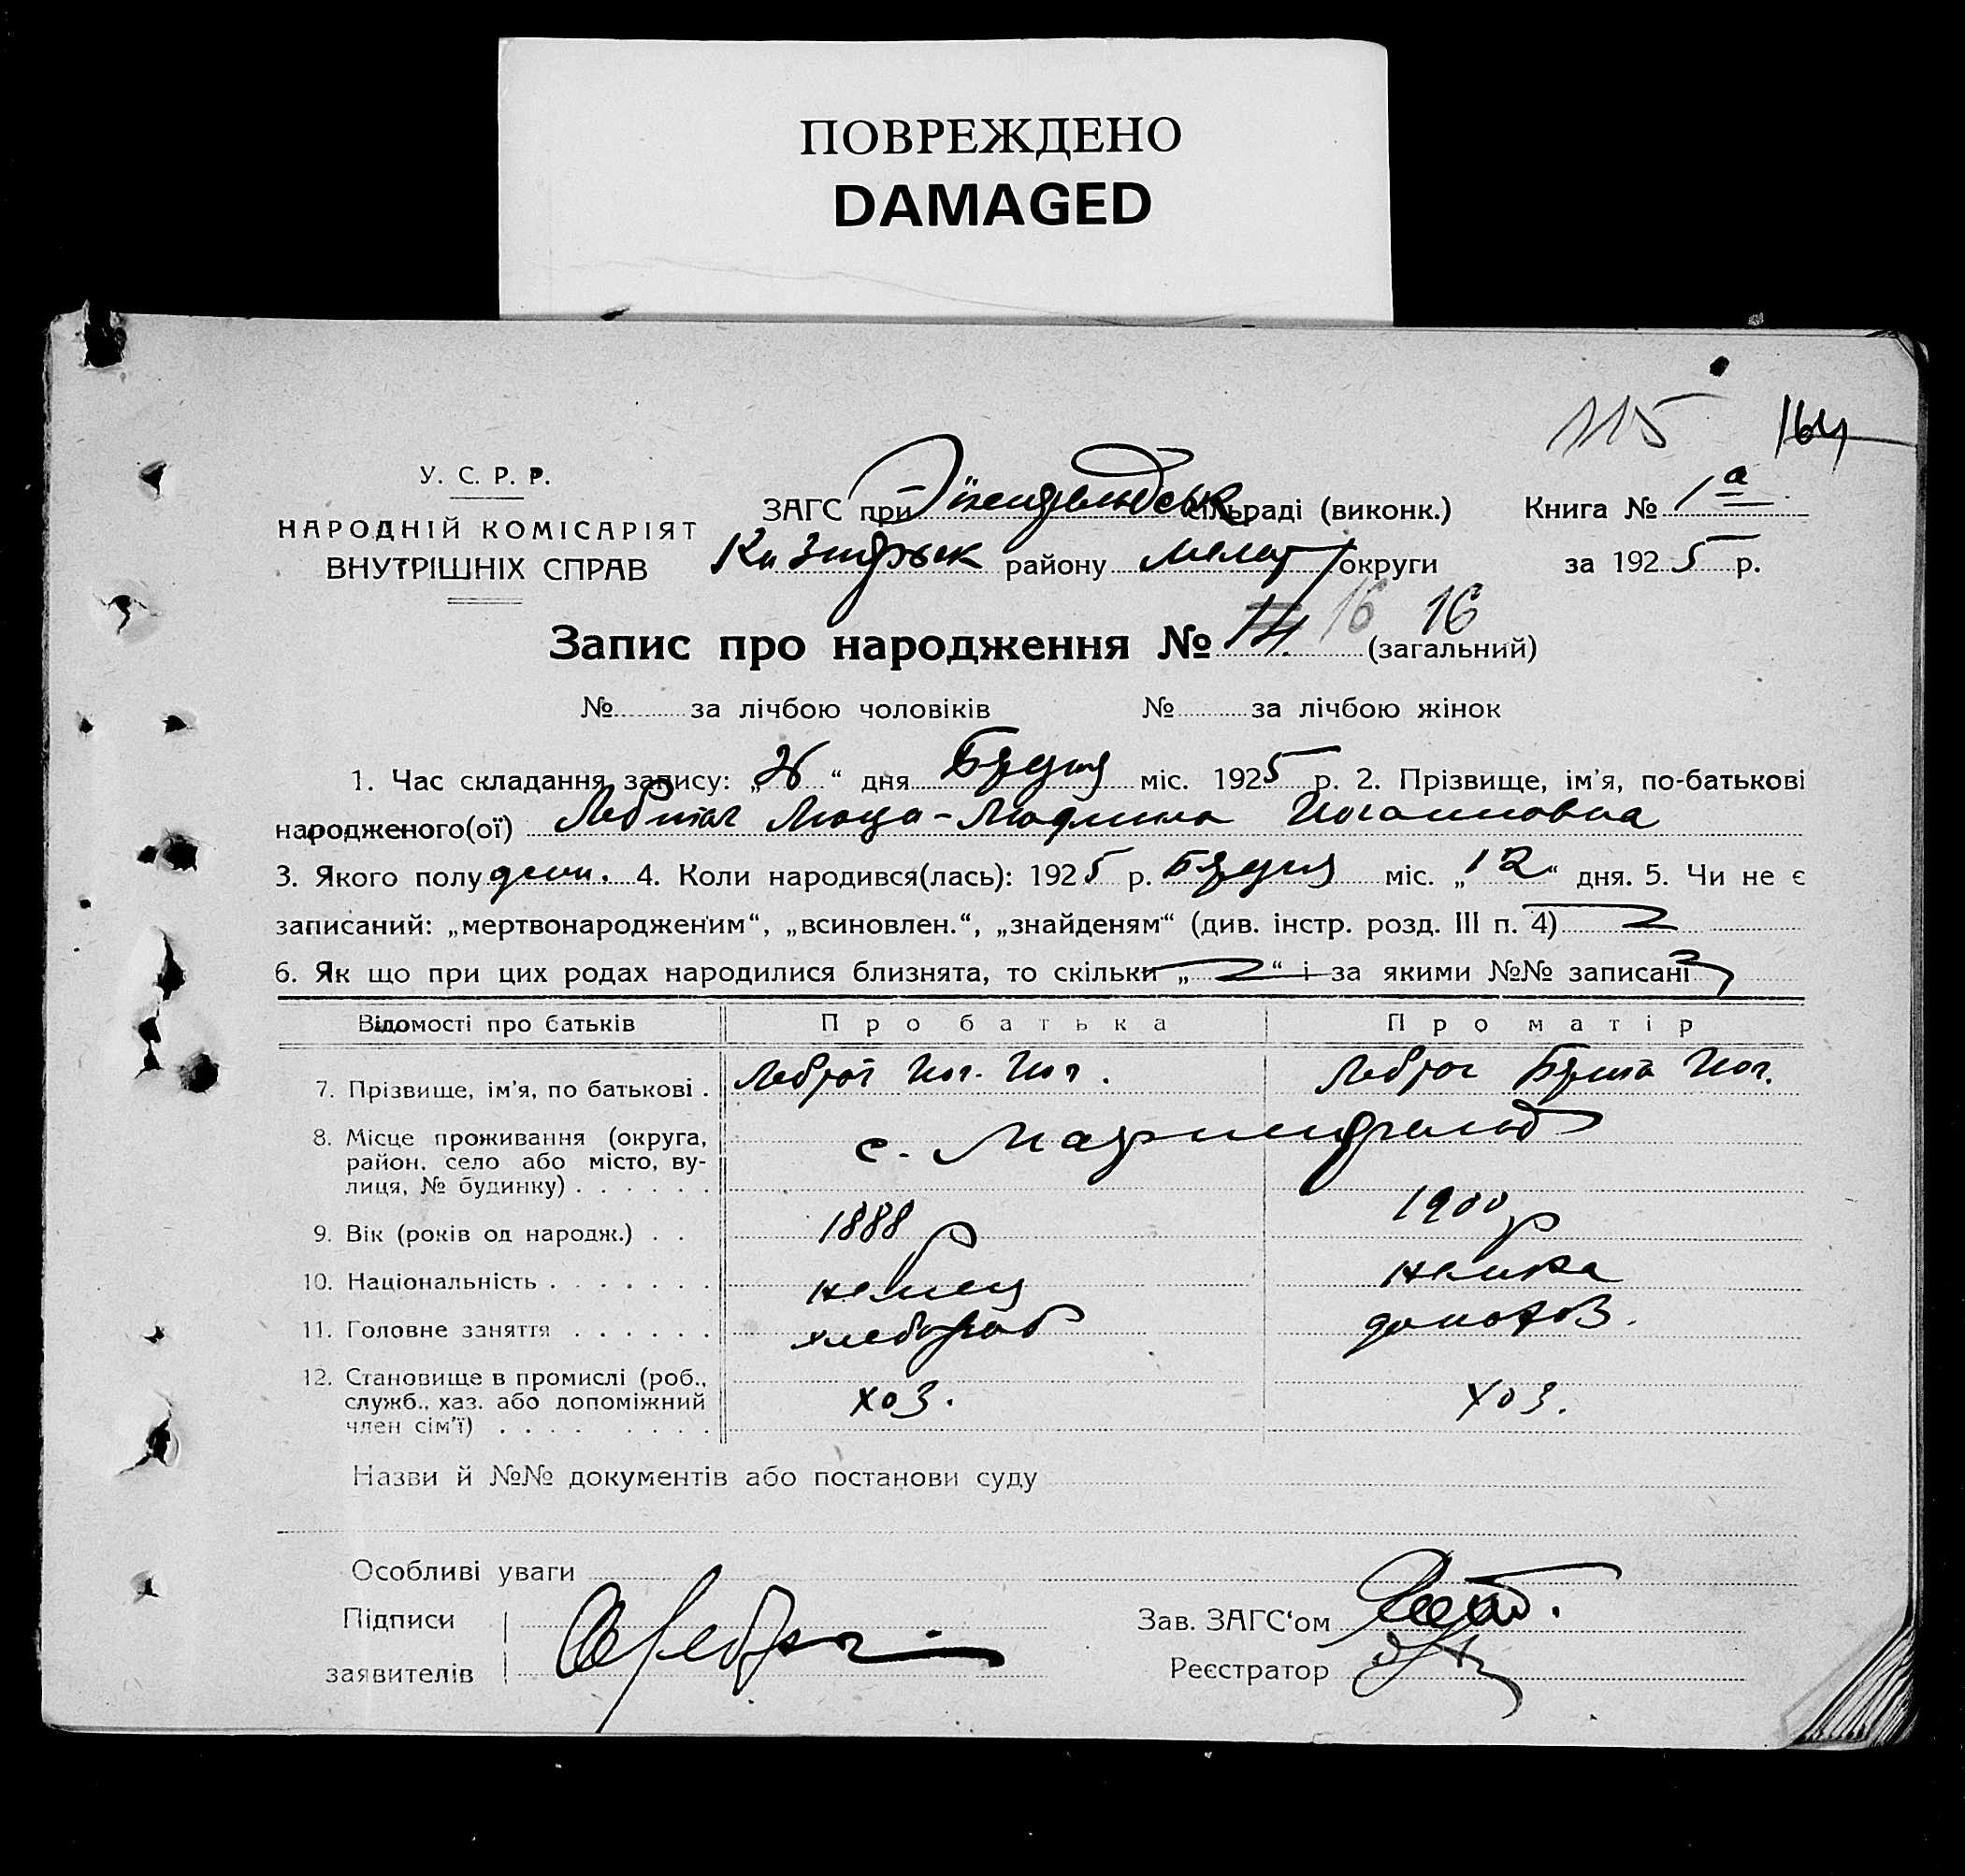 ПОВРЕЖДЕНО
DAMAGED
115 164
У. С. Р. Р.
НАРОДНІЙ КОМІСАРІЯТ
ВНУТРІШНІХ СПРАВ
ЗАГС при сільраді (виконк.)
району Мелит округи
Книга № 1а
за 1925 р.
Запис про народження № 14 16 16 (загальний)
№ за лічбою чоловіків № за лічбою жінок
1. Час складання запису: „26“ дня Грудня міс. 1925 р. 2. Прізвище, ім'я, по-батькові
народженого(ої) Люца-Людмила Иогановна
3. Якого полу жен. 4. Коли народився(лась): 1925 р. Грудня міс. „12“ дня. 5. Чи не є
записаний: „мертвонародженим“, „всиновлен.“, „знайденям“ (див. інстр. розд. III п. 4)
6. Як що при цих родах народилися близнята, то скільки „ “ і за якими №№ записані
Відомості про батьків Про батька Про матір
7. Прізвище, ім'я, по батькові . Иог. Иог. Иог.
8. Місце проживання (округа,
район, село або місто, ву-
лиця, № будинку) . . . . . .
с.
9. Вік (років од народж.) . . 1888 р 1900 р
10. Національність . . . . . . . немец немка
11. Головне заняття . . . . . . хлебороб домохоз.
12. Становище в промислі (роб.,
служб., хаз. або допоміжний
член сім'ї) . . . . . . . .
хоз. хоз.
Назви й №№ документів або постанови суду
Особливі уваги
Підписи
заявителів
Зав. ЗАГС‘ом
Реєстратор